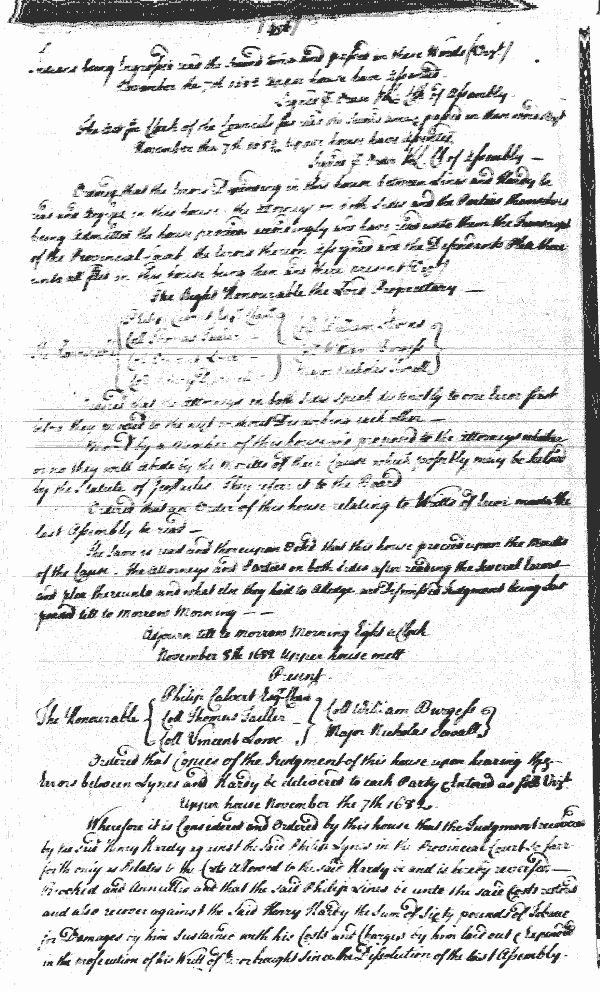 Indians being Engrossed read the second time and passed in these Words (Vizt)
November the 7th 1682 Upper house have Assented.
Signed p Order Clk of Assembly.
The Act for Clerk of the Councils fees read the second time passed in these words Vizt
November the 7th 1682 Upper house have Assented
Signed p Order Cl of Assembly —
Ordered that the Errors Depending in this house between Lines and Hardy be
read and Argued in this house, the Attorneys on both Sides and the Parties themselves
being Admitted the house proceeds accordingly and have read unto them the Transcript
of the Provincial Court, the Errors thereon Assigned and the Defendants Plea there
unto all filed in this house being then and there present (Vizt)
The Right Honourable the Lord Proprietary —
The Honourable { Philip Calvert Esqr Chanr } { Coll William
Coll Thomas Tailler } { Coll William Burgess
Coll Vincent Lowe } { Major Nicholas Sewall
Coll
Ordered that the Attorneys on both Sides speak distinctly to one Error first
before they proceed to the next without Disturbing each other —
Moved by a Member of this house and proposed to the Attorneys whether
or no they will abide by the Meritts of their Cause which possibly may be
by the Statute of Jeofailes They refer it to the Board
Ordered that an Order of this house relating to Writts of Error made the
last Assembly be read —
The Same is read and thereupon Voted that this house proceed upon the Meritts
of the Cause. the Attorneys and Parties on both Sides after reading the Several Errors
and plea thereunto and what else they had to Alledge are Dismissed Judgment being Sus
pended till to Morrow Morning — —
Adjourn till to morrow Morning Eight a Clock
November 8th 1682 Upper house mett
Present.
The Honourable { Philip Calvert Esqr Chanr } { Coll William Burgess
Coll Thomas Tailler } { Major Nicholas Sewall }
Coll Vincent Lowe }
Ordered that Copies of the Judgment of this house upon hearing the
Errors between Lynes and Hardy be delivered to each Party Entered as foll Vizt
Upper house November the 7th 1682.
Wherefore it is Considered and Ordered by this house that the Judgment recovered
by the said Henry Hardy against the said Philip Lynes in the Provincial Court so farr
forth only as Relates to the Costs Allowed to the said Hardy be and is hereby reversed —
Revoked and Annulled and that the said Philip Lines be unto the said Costs restored
and also recover against the Said Henry Hardy the Sum of Sixty pounds of Tobacco
for Damages by him Sustained with his Costs and Charges by him laid out & Expended
in the prosecution of his Writt of Error brought since the Dissolution of the last Assembly.